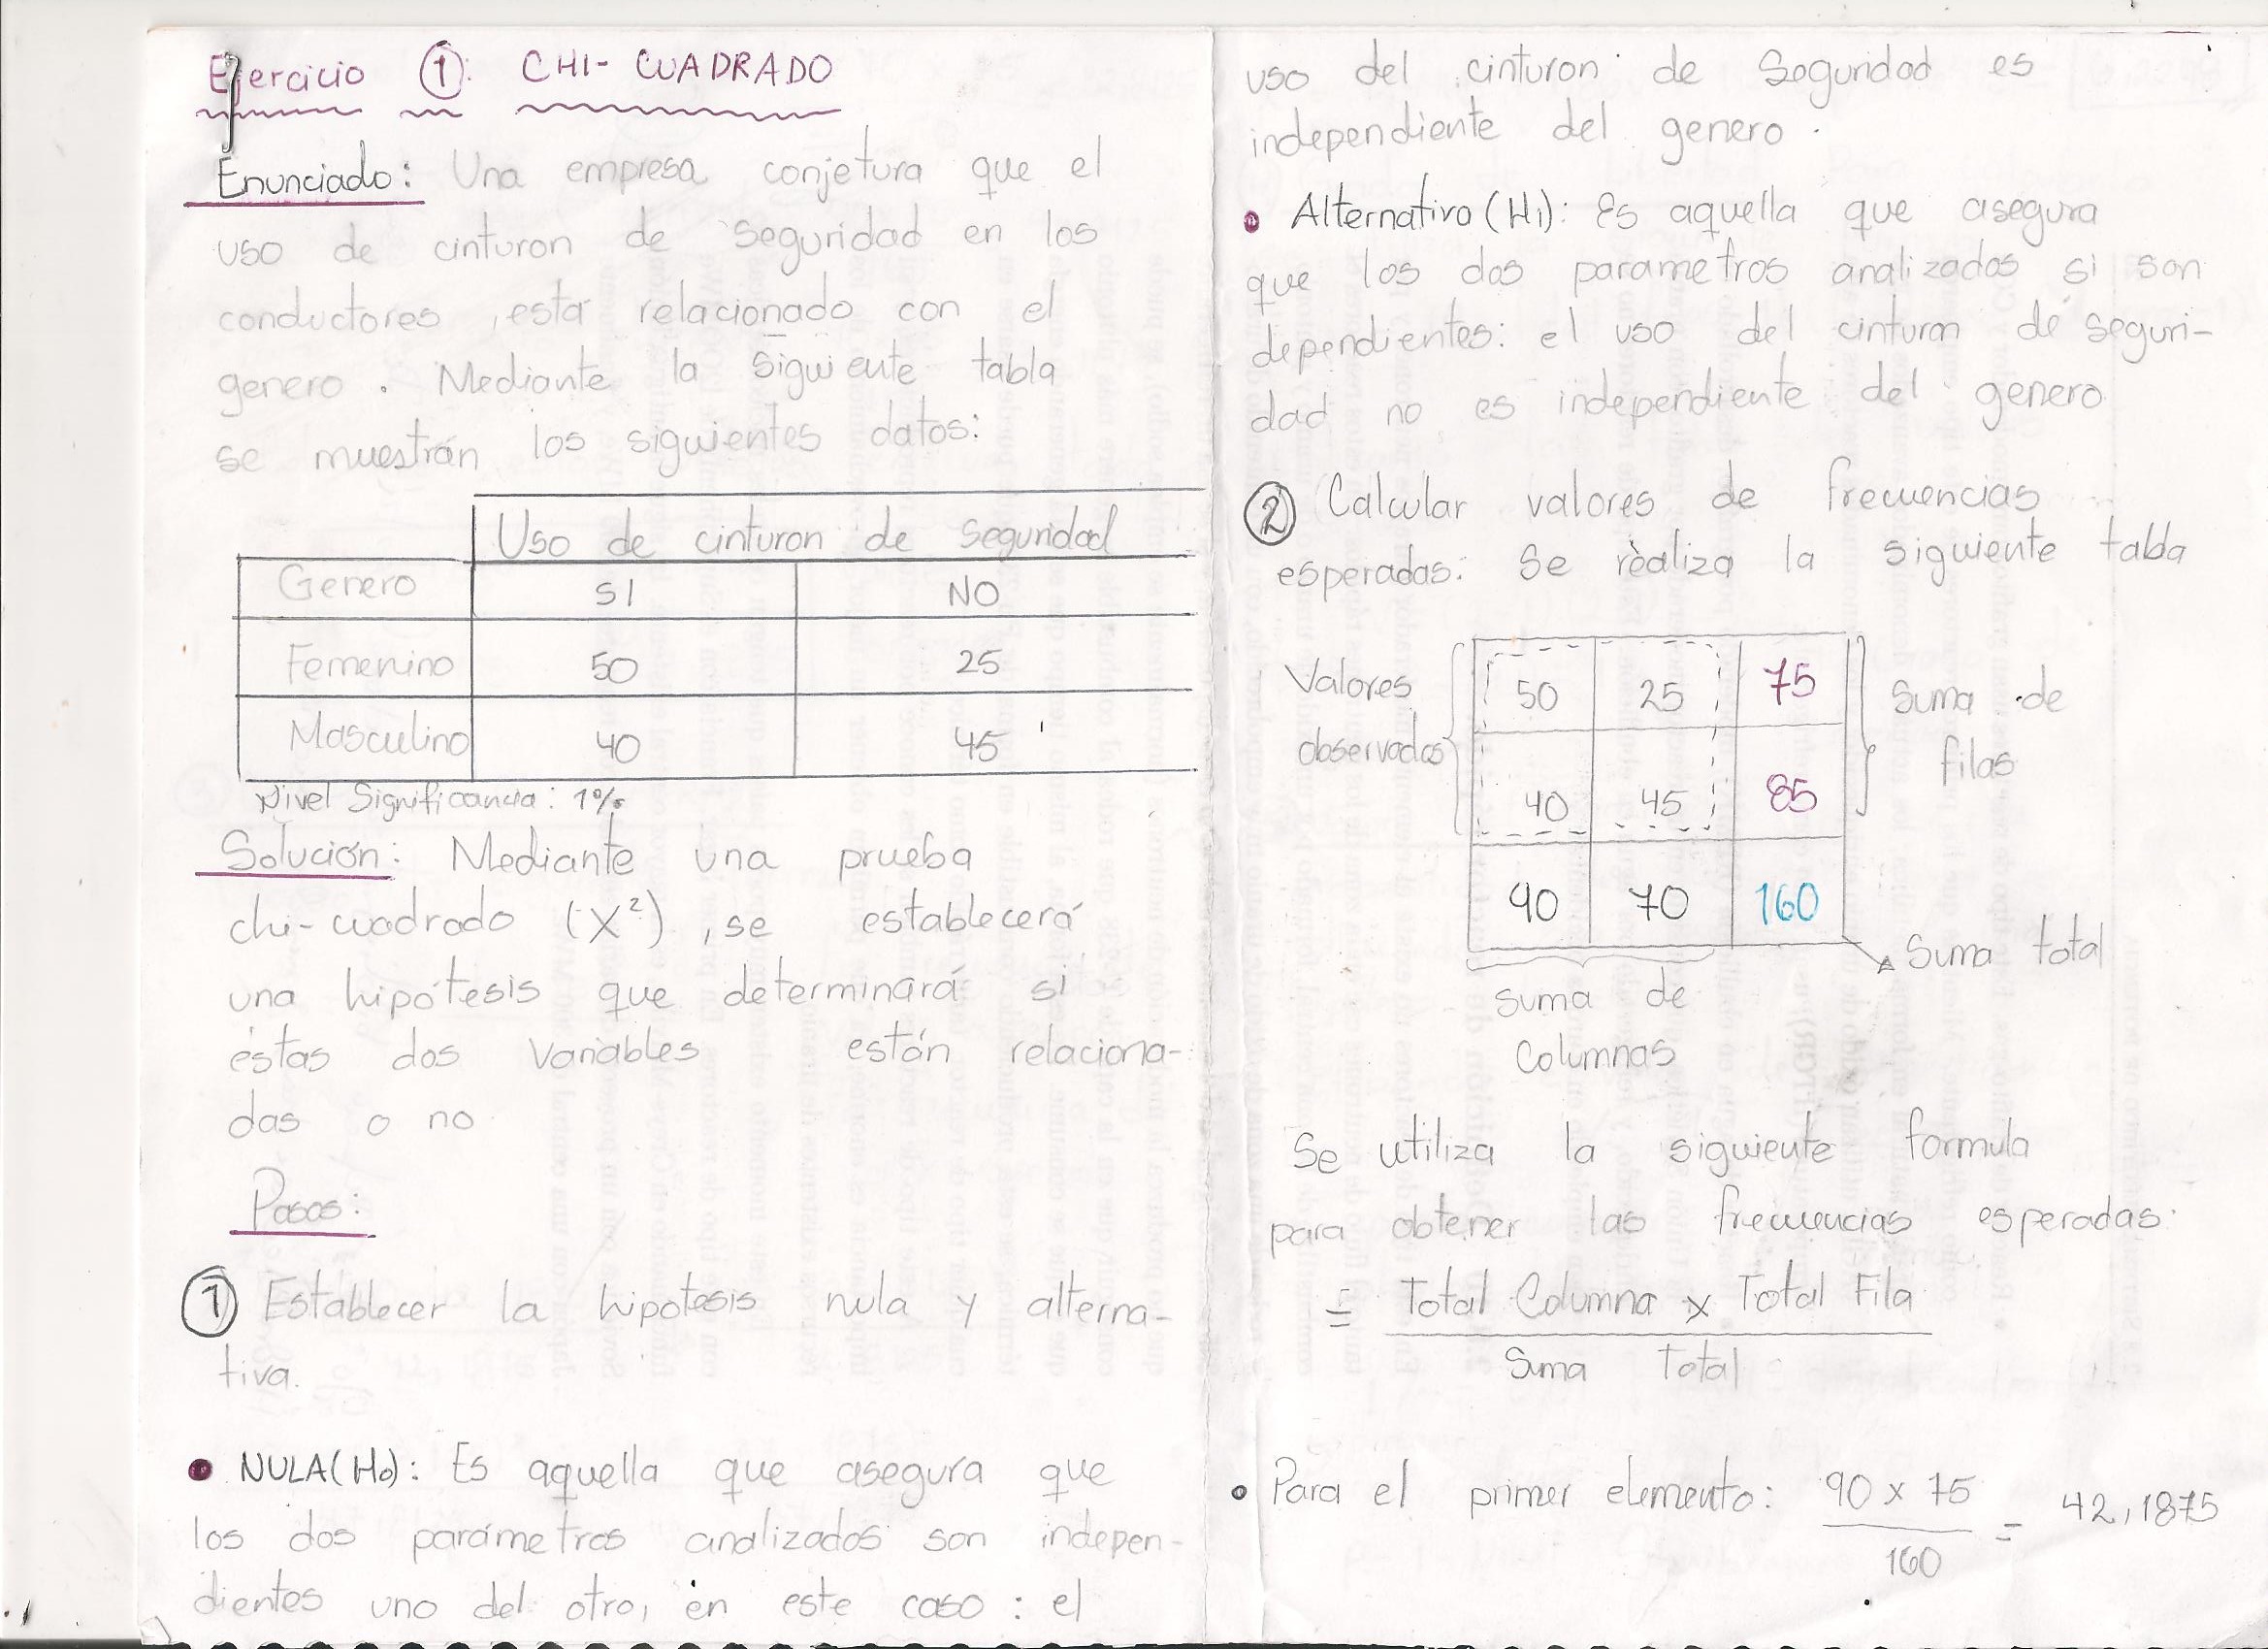 Ejercicio 1: CHI-CUADRADO
Enunciado: Una empresa conjetura que el
uso de cinturon de seguridad en los
conductores, esta relacionado con el
genero. Mediante la siguiente tabla
se muestrán los siguientes datos:
Uso de cinturon de seguridad
Genero SI NO
Femenino 50 25
Masculino 40 45
Nivel Significancia: 1%
Solución: Mediante una prueba
chi-cuadrado (X²), se establecerá
una hipótesis que determinará si
éstas dos variables están relaciona-
das o no
Pasos:
1 Establecer la hipotesis nula y alterna-
tiva.
• NULA(H0): Es aquella que asegura que
los dos parámetros analizados son indepen-
dientes uno del otro, en este caso: el
uso del cinturon de seguridad es
independiente del genero.
• Alternativo(H1): Es aquella que asegura
que los dos parametros analizados si son
dependientes: el uso del cinturon de seguri-
dad no es independiente del genero
2 Calcular valores de frecuencias
esperadas: Se realiza la siguiente tabla
Valores
observados
50 25 75
40 45 85
90 70 160
Suma de
filas
Suma total
suma de
columnas
Se utiliza la siguiente formula
para obtener las frecuencias esperadas:
= Total Columna x Total Fila
Suma Total
• Para el primer elemento: 90 x 75 = 42,1875
160